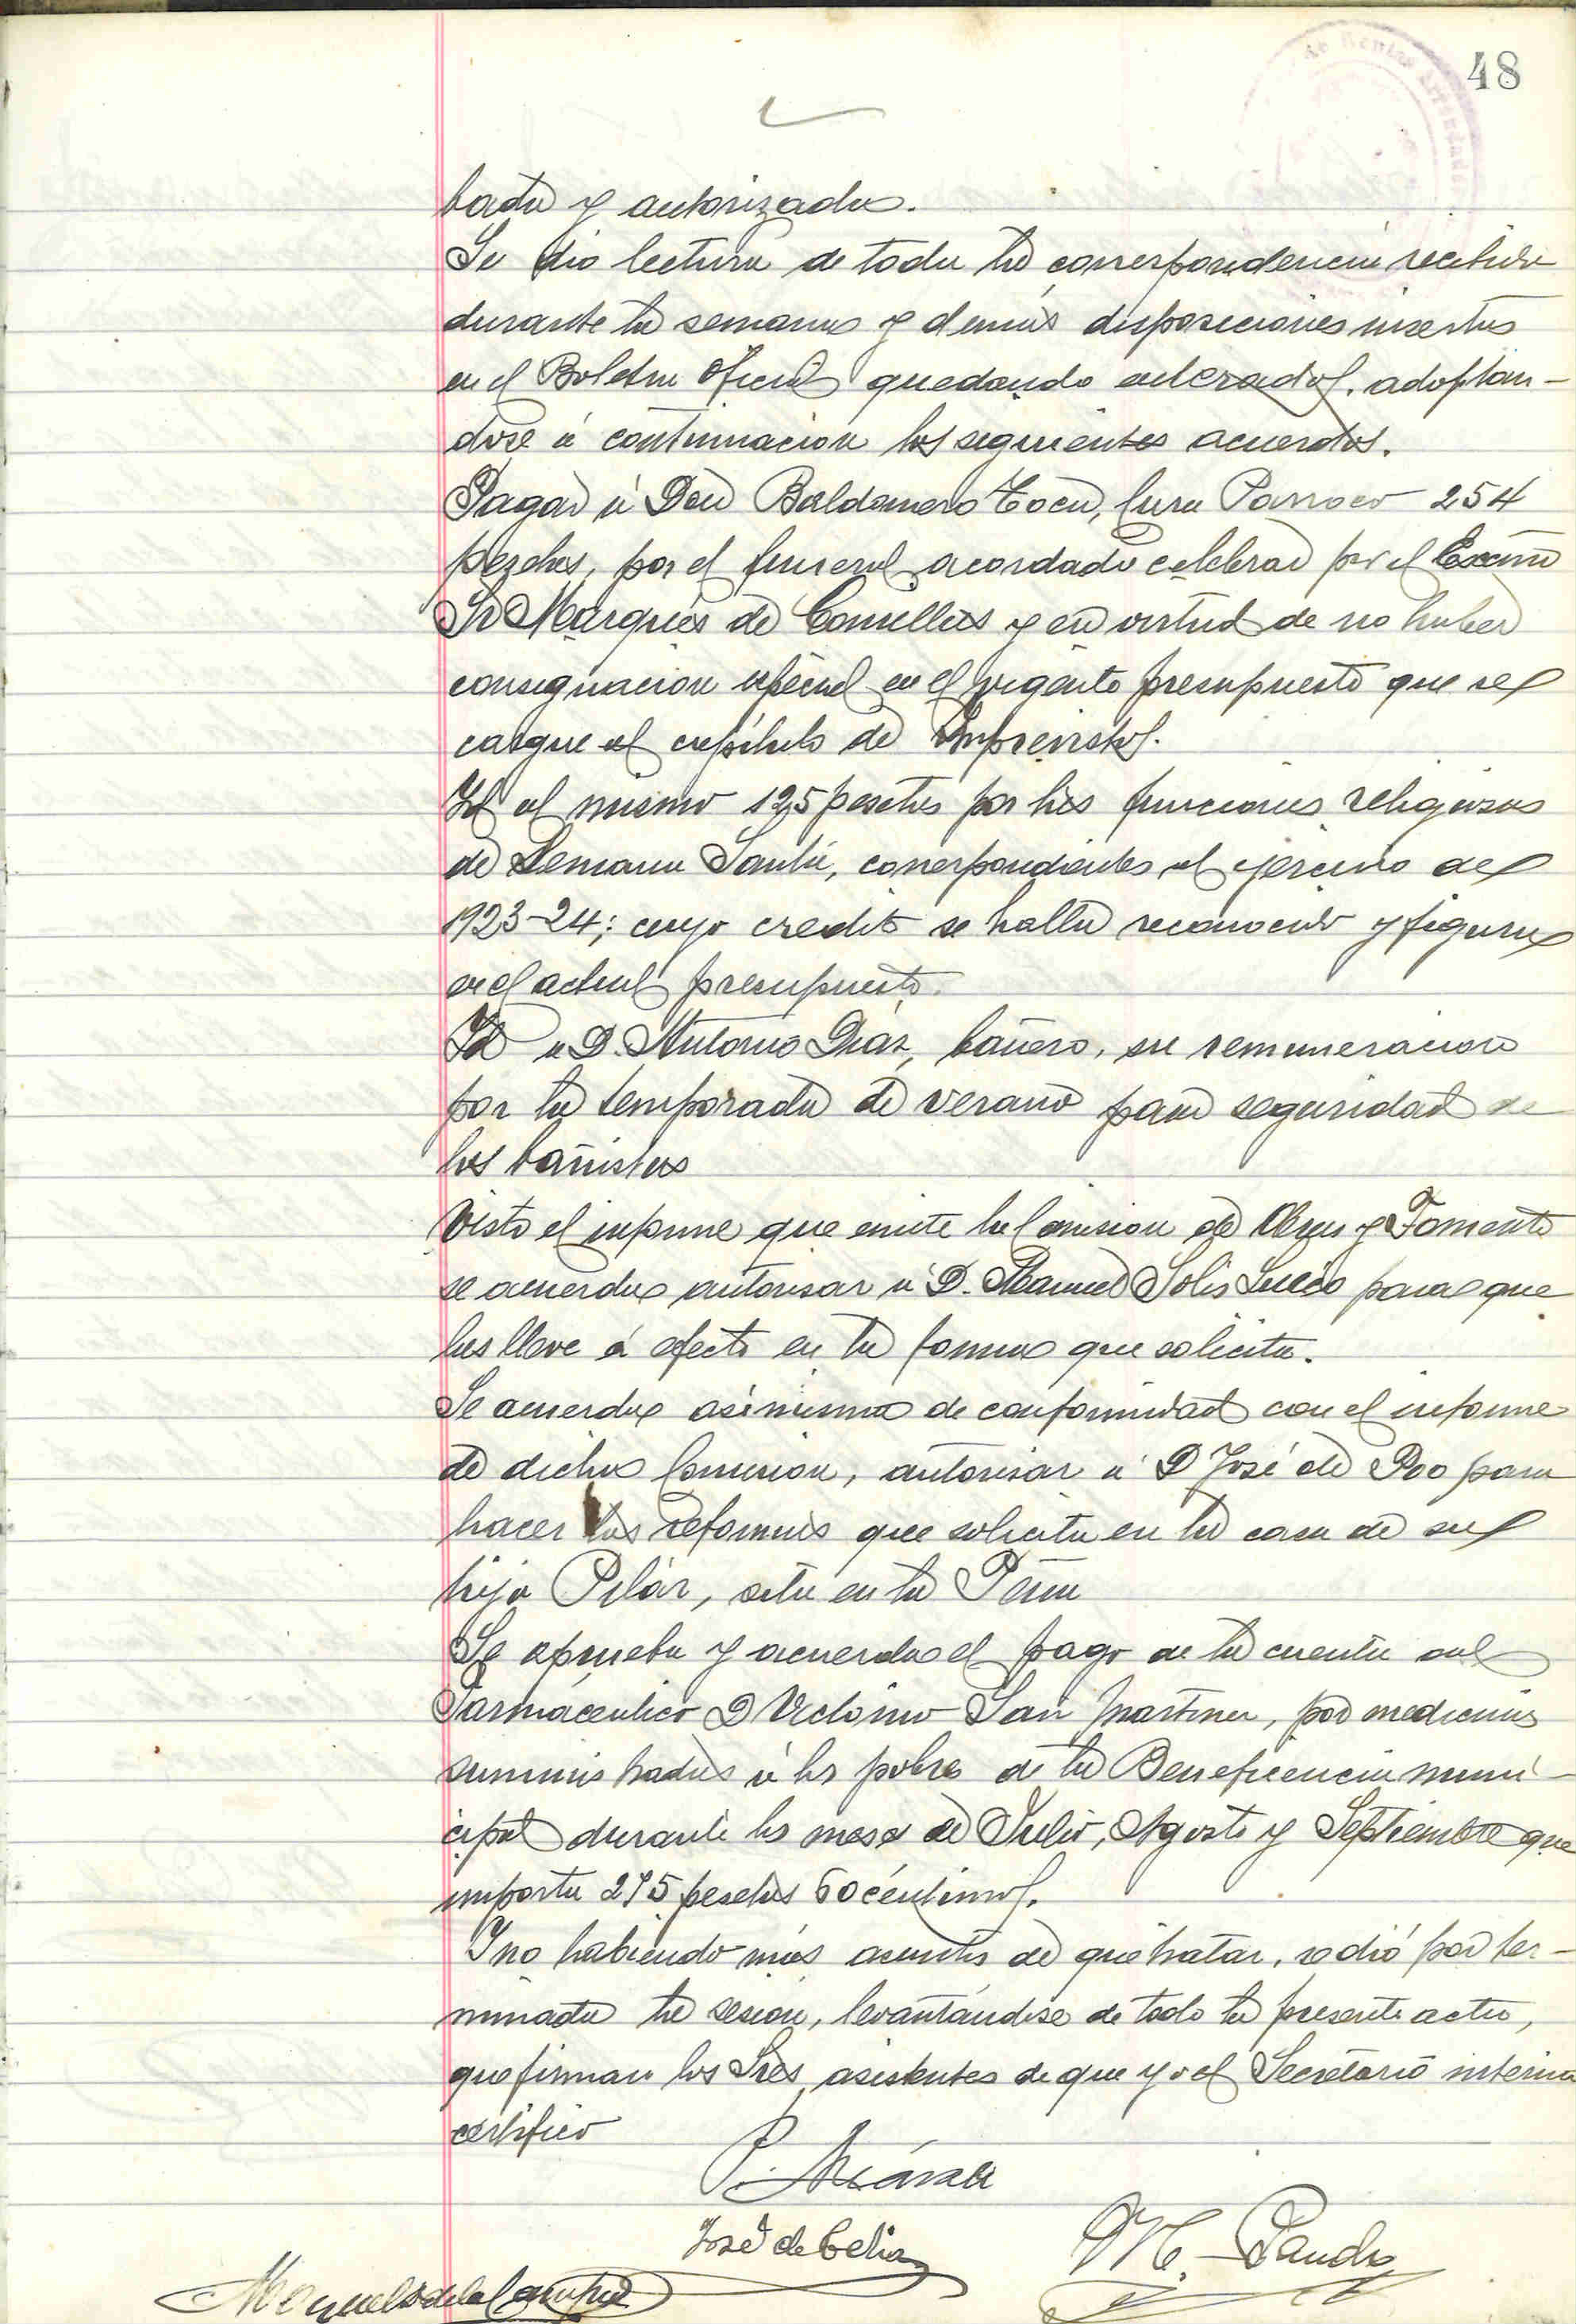 48
bada y autorizada.
Se dio lectura de toda la correspondencia recibida
durante la semana y demás disposiciones insertas
en el Boletin Oficial quedando enterados, adoptan-
dose á continuacion los siguientes acuerdos.
Pagar á Don Baldomero Coca, Cura Parroco 254
pesetas, por el funeral acordado celebrar por el Excmo
Sr Marqués de Comillas y en virtud de no haber
consignacion especial en el vigente presupuesto que se
cargue al capítulo de Imprevistos.
Id al mismo 125 pesetas por las funciones religiosas
de Semana Santa, correspondientes al ejercicio de
1923-24; cuyo credito se halla reconocido y figura
en el actual presupuesto.
Id a D. Antonio Diaz, bañero, su remuneracion
por la temporada de verano para seguridad de
los bañistas
Visto el informe que emite la Comision de Obras y Fomento
se acuerda autorisar á D. Manuel Solis para que
las lleve á efecto en la forma que solicita.
Se acuerda asimismo de conformidad con el informe
de dicha Comision, autorisar á D José de Poo para
hacer las reformas que solicita en la casa de su
hija Pilár, sita en la
Se aprueba y acuerda el pago de la cuenta del
Farmáceutico D Victorino San Martin, por medicinas
suministradas á los pobres de la Beneficencia muni-
cipal durante los meses de Julio, Agosto y Septiembre que
importa 275 pesetas 60 céntimos.
Y no habiendo más asuntos de que tratar, se dió por ter-
minada la sesion, levantándose de todo la presente acta,
que firman los Sres asistentes de que yo el Secretario interino
certifico
José de Celia
M.
Manuel de la